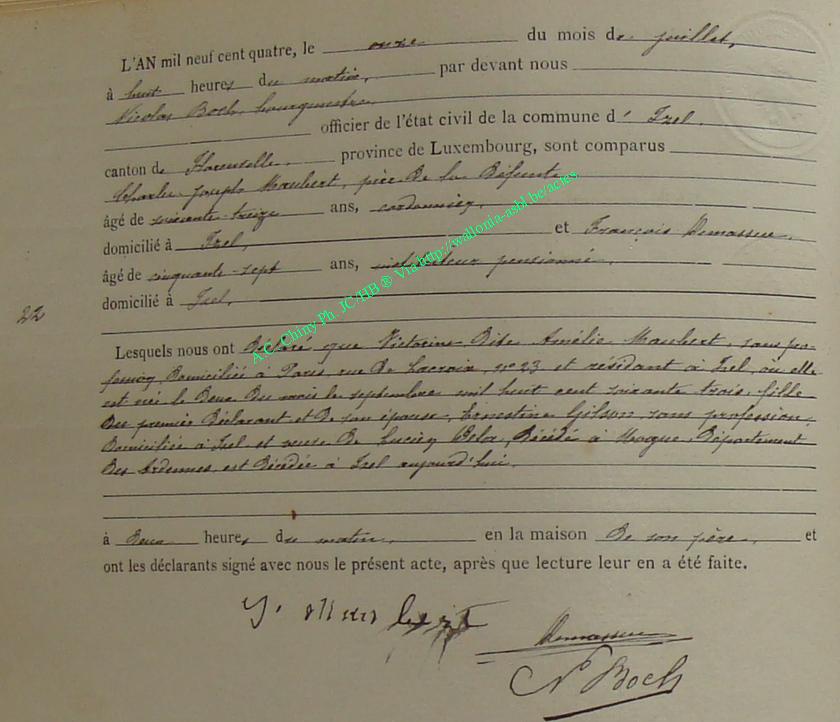 L'AN mil neuf cent quatre, le onze du mois de juillet,
à huit heures du matin, par devant nous
Nicolas Boch, bourgmestre
officier de l'état civil de la commune d' Izel.
canton de Florenville. province de Luxembourg, sont comparus
Charles Joseph Maubert, père De la Défunte
âgé de soixante-treize ans, cordonnier,
domicilié à Izel, et François Demasseur
âgé de cinquante-sept ans, instituteur pensionné.
domicilié à Izel.
22
Lesquels nous ont Déclaré que Victorine Amélie Maubert, sans pro-
fession, Domiciliée à Paris, rue De Lacroix, n° 23 et résidant à Izel, où elle
est née le Deux Du mois de septembre mil huit cent soixante trois, fille
Du premier Déclarant et De son épouse, Ernestine Gilson, sans profession,
Domiciliée à Izel et veuve De Lucien Décédé à Département
Des Ardennes, est Décédée à Izel aujourd'hui.
à Deux heures du matin, en la maison De son père. et
ont les déclarants signé avec nous le présent acte, après que lecture leur en a été faite.
Demasseur
N Boch
A.C. Chiny Ph. JC/HB ® Via http://wallonia-asbl.be/actes